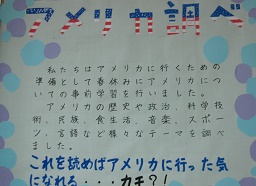 アメリカ調べ
私たちはアメリカに行くための
準備として春休みにアメリカにつ
いての事前学習を行いました。
アメリカの歴史や政治、科学技
術、民族、食生活、音楽、スポー
ツ、言語など様々なテーマを調べ
ました。
これを読めばアメリカに行った気
になれる・・・カモ?!